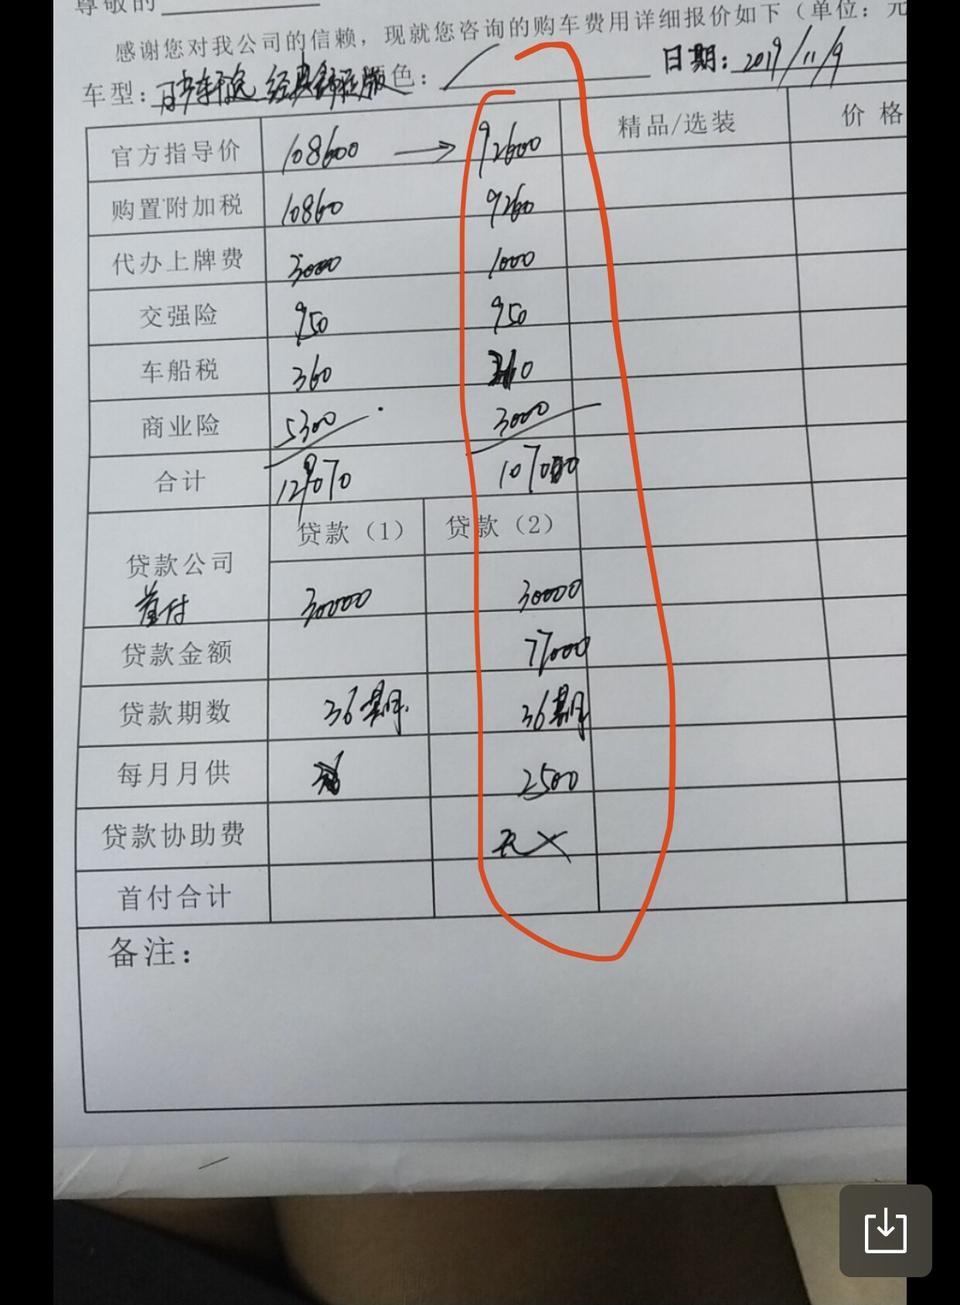 尊敬的
感谢您对我公司的信赖，现就您咨询的购车费用详细报价如下（单位：元
车型：日产轩逸 经典 颜色： 日期：2019/11/9
官方指导价 108600 → 92600 精品/选装 价格
购置附加税 10860 9260
代办上牌费 3000 1000
交强险 950 950
车船税 360 360
商业险 5300 3000
合计 129070 107000
贷款（1） 贷款（2）
贷款公司
首付 30000 30000
贷款金额 77000
贷款期数 36期 36期
每月月供 2500
贷款协助费 无
首付合计
备注：